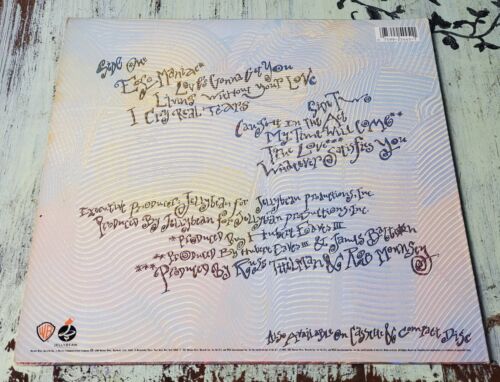 Side One
Ego Maniac
Love's Gonna Get You
Living Without Your Love
I Cry Real Tears
Side Two
Caught In The Act
My Time Will Come**
The Love***
Whatever Satisfies You
Executive Producers Jellybean for Jellybean Productions, Inc.
Produced By Jellybean for Jellybean Productions, Inc.
*Produced By Hubert Eaves III
**Produced By Hubert Eaves III & James
***Produced By Ross & Rob
JELLYBEAN
Also Available On Cassette & Compact Disc